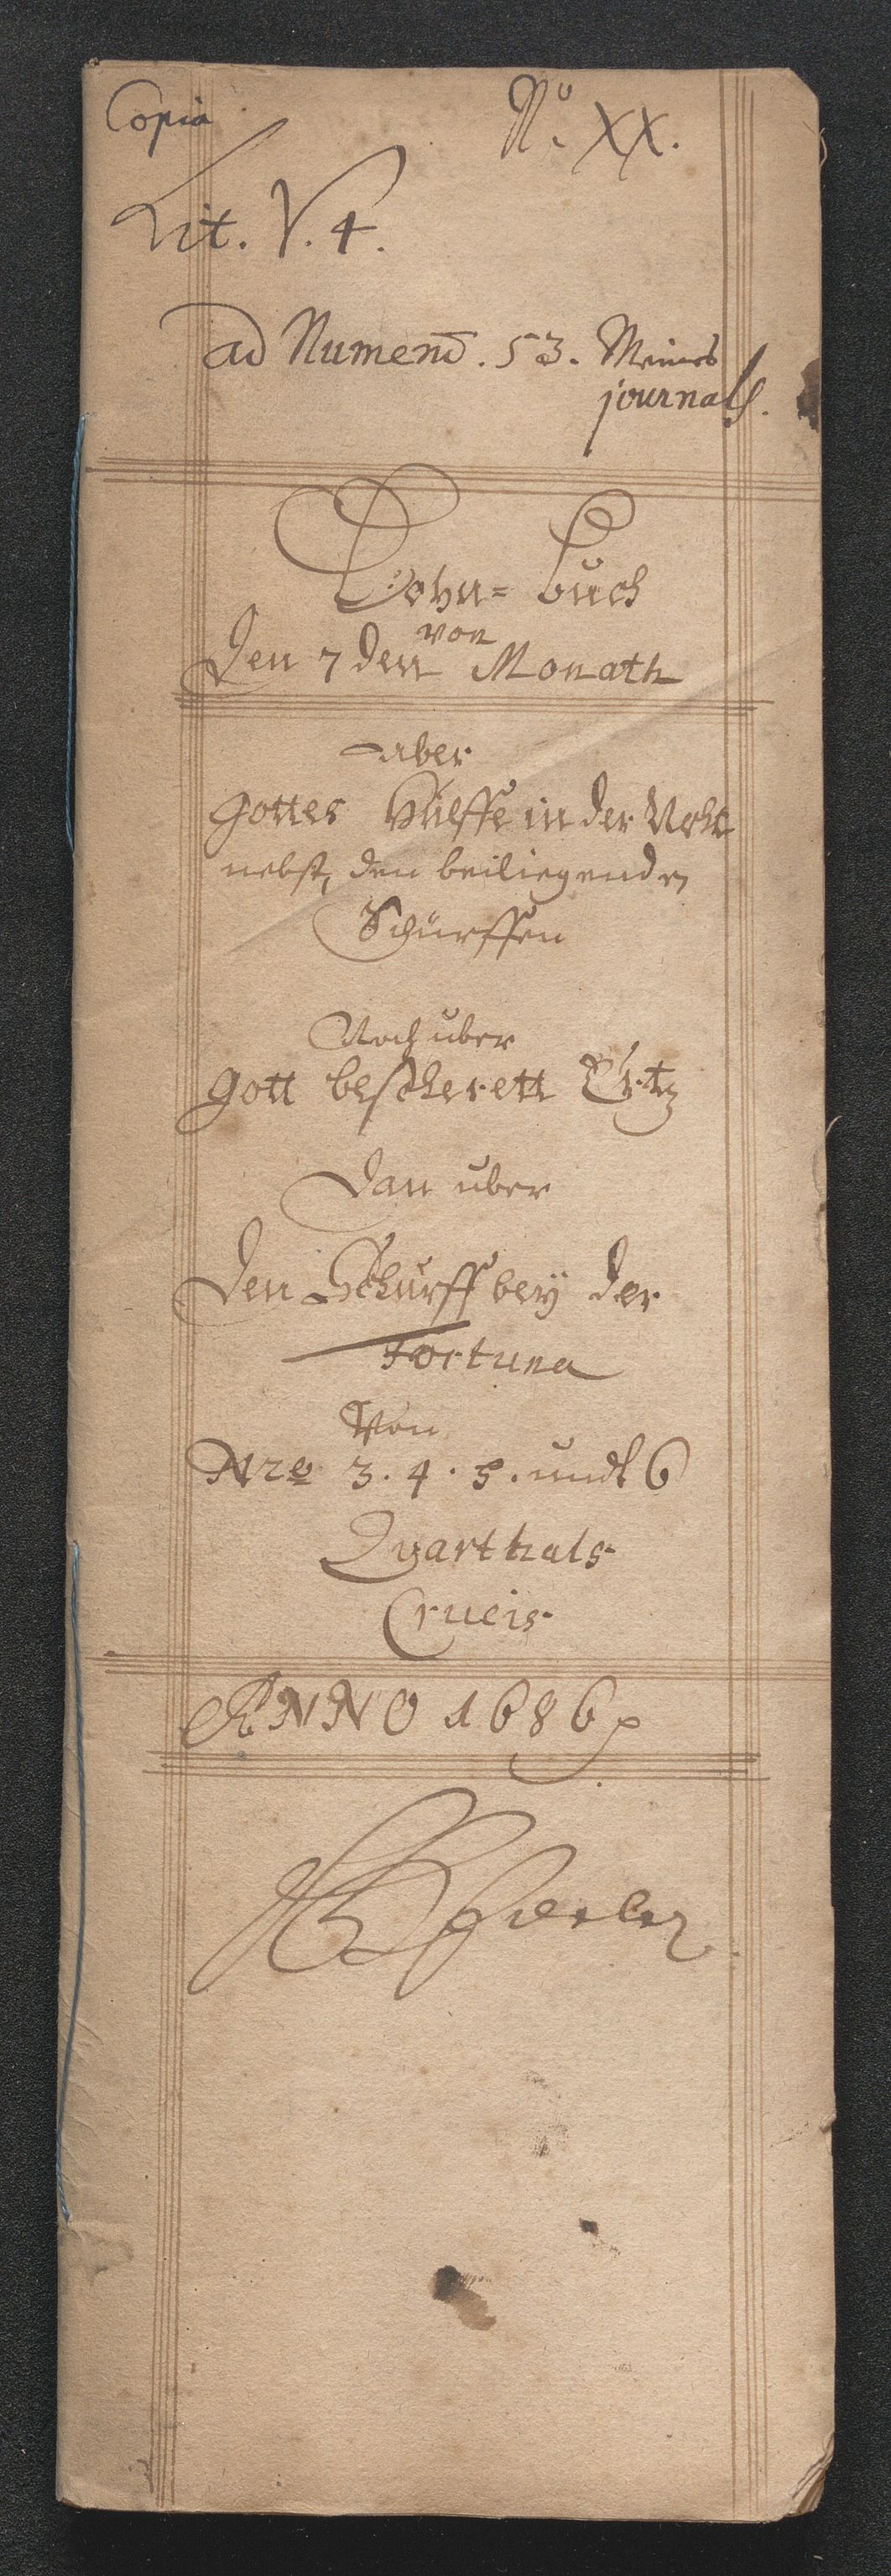 Copia
No. XX.
Lit. V. 4.
ad Numerũ. 53. Meines
journals.
Lohn= Buch
von
Den 7 den Monath
uber
Gottes Hülffe in der
nebst, den beiliegenden
Schürffen
Noch uber
Gott bescherett Ertz
Dan uber
Den Schurff beÿ der
Fortuna
Von
Nro 3. 4. 5. undt 6
Quarthals
Crucis
ANNO 1686